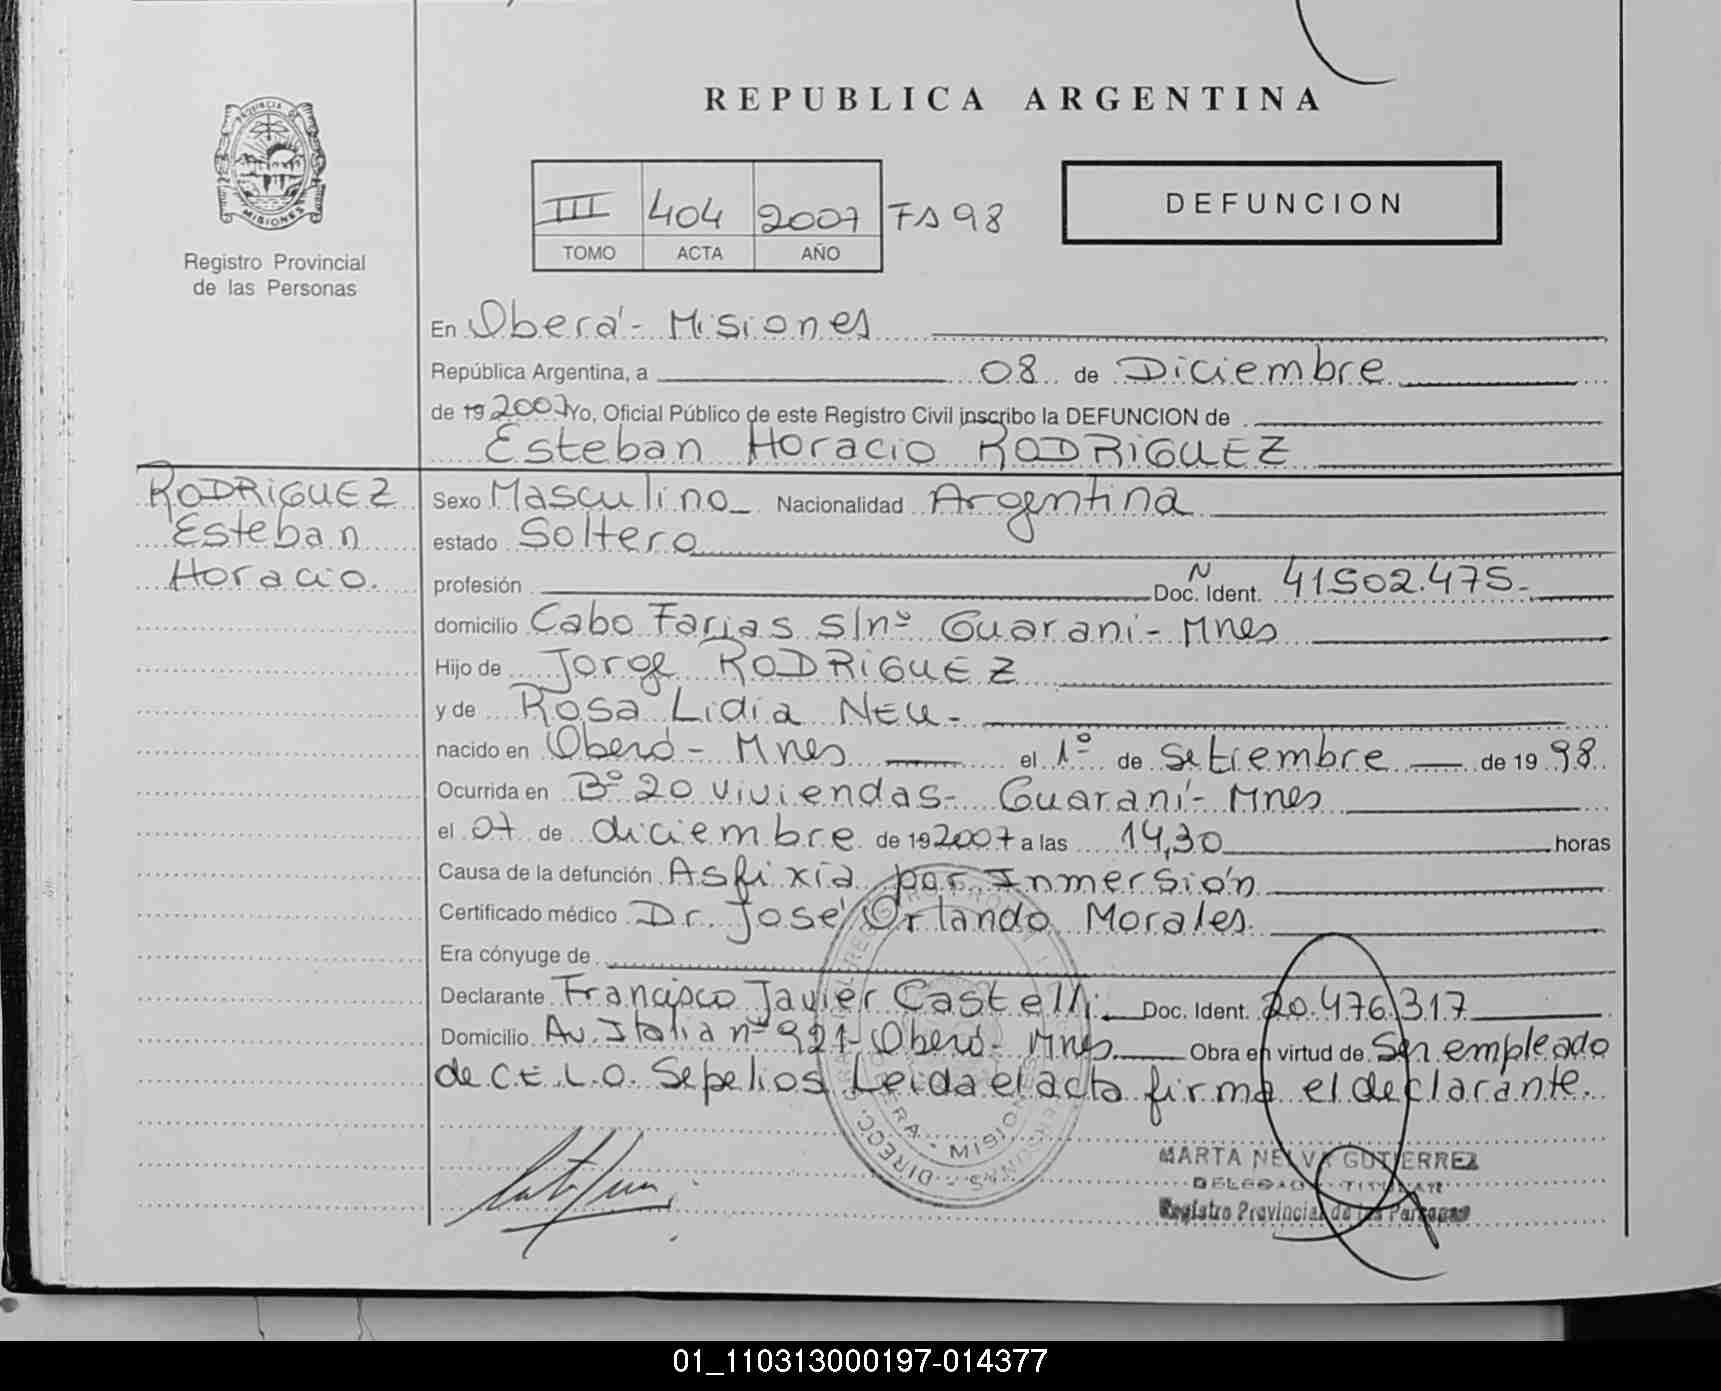 REPUBLICA ARGENTINA
PROVINCIA DE MISIONES
Registro Provincial
de las Personas
III 404 2007 Fs 98
TOMO ACTA AÑO
DEFUNCION
En Oberá - Misiones
República Argentina, a 08 de Diciembre
de 19 2007 Yo, Oficial Público de este Registro Civil inscribo la DEFUNCION de
Esteban Horacio RODRIGUEZ
RODRIGUEZ
Esteban
Horacio.
Sexo Masculino Nacionalidad Argentina
estado Soltero
profesión Doc. Ident. N 41502.475.-
domicilio Cabo Farias S/nº Guarani - Mnes
Hijo de Jorge RODRIGUEZ
y de Rosa Lidia NEU -
nacido en Oberá - Mnes el 1º de Setiembre de 19 98
Ocurrida en Bº 20 viviendas - Guaraní - Mnes
el 07 de diciembre de 19 2007 a las 14,30 horas
Causa de la defunción Asfixia por Inmersión
Certificado médico Dr. José Orlando Morales
Era cónyuge de
Declarante Francisco Javier Castelli Doc. Ident. 20.476.317
Domicilio Av. Italia nº 921 - Oberá - Mnes Obra en virtud de Ser empleado
de C.E.L.O. Sepelios Leida el acta firma el declarante.
MARTA NELVA GUTIERREZ
DELEGADA TITULAR
Registro Provincial de las Personas
01_110313000197-014377